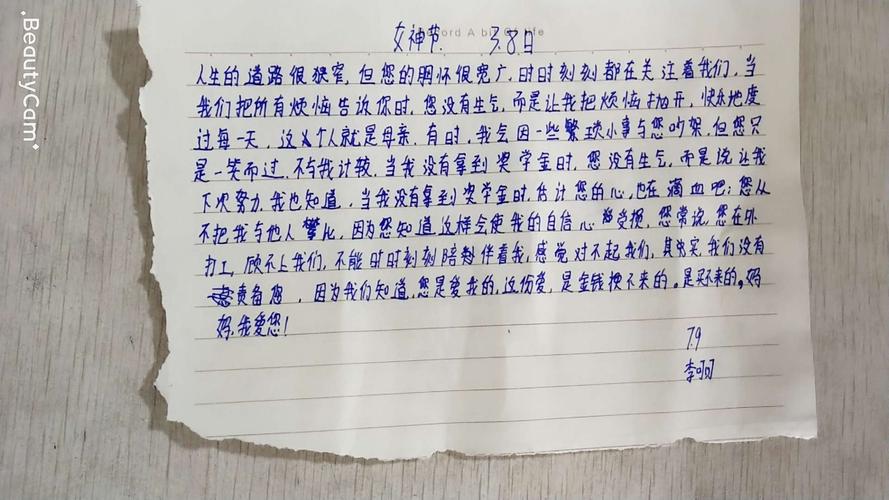 BeautyCam
ord A bit Of life
女神节. 3.8日
人生的道路很狭窄,但您的胸怀很宽广,时时刻刻都在关注着我们,当
我们把所有烦恼告诉你时,您没有生气,而是让我把烦恼抛开,快乐地度
过每一天,这个人就是母亲,有时,我会因一些繁琐小事与您吵架,但您只
是一笑而过,不与我计较,当我没有拿到奖学金时,您没有生气,而是说让我
下次努力,我也知道,当我没有拿到奖学金时,估计您的心,也在滴血吧;您从
不把我与他人攀比,因为您知道,这样会使我的自信心受损,您常说,您在外
打工,顾不上我们,不能时时刻刻陪伴着我,感觉对不起我们,其实,我们没有
责备您,因为我们知道,您是爱我的,这份爱,是金钱换不来的。是买不来的。妈
妈,我爱您!
7.9
李